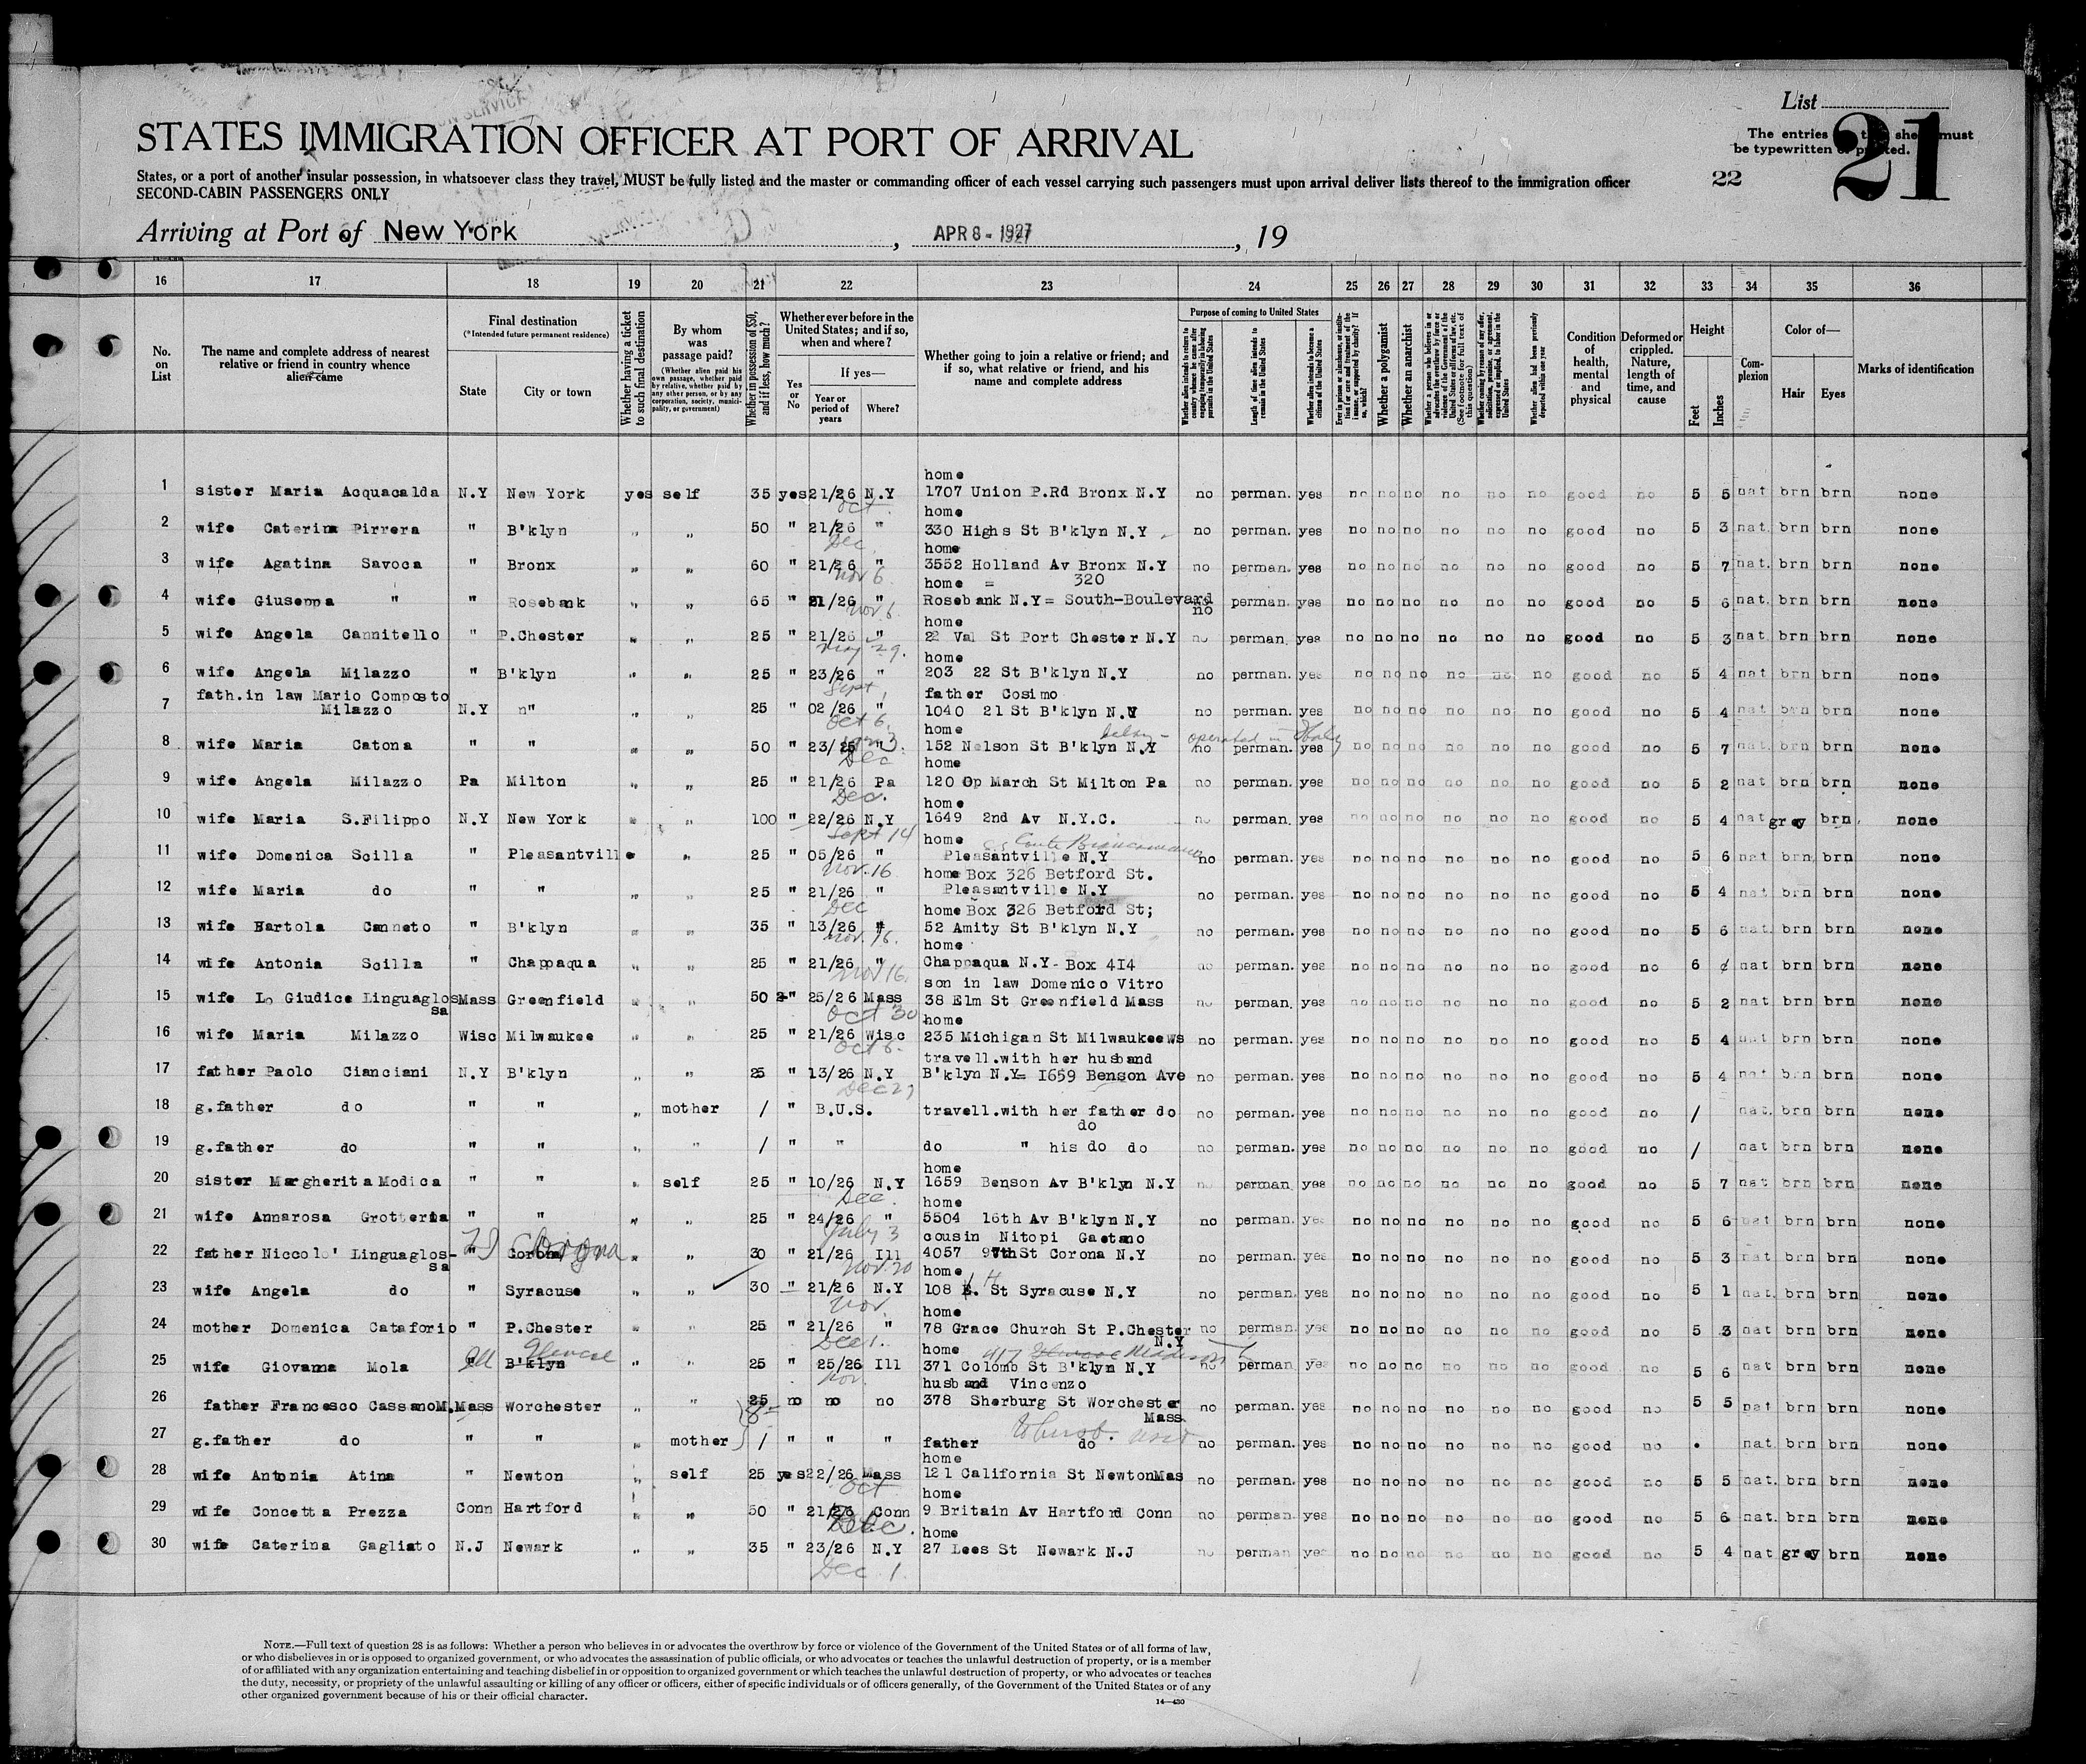 List
21
The entries must
be typewritten
22
STATES IMMIGRATION OFFICER AT PORT OF ARRIVAL
States, or a port of another insular possession, in whatsoever class they travel, MUST be fully listed and the master or commanding officer of each vessel carrying such passengers must upon arrival deliver lists thereof to the immigration officer
SECOND-CABIN PASSENGERS ONLY
Arriving at Port of New York, APR 8 - 1927, 19
16 17 18 19 20 21 22 23 24 25 26 27 28 29 30 31 32 33 34 35 36
No. on List
The name and complete address of nearest relative or friend in country whence alien came
Final destination
(*Intended future permanent residence)
State
City or town
Whether having a ticket to such final destination
By whom was passage paid?
(Whether alien paid his own passage, whether paid by relative, whether paid by any other person, or by any corporation, society, municipality, or government)
Whether in possession of $50, and if less, how much?
Whether ever before in the United States; and if so, when and where?
Yes or No
If yes—
Year or period of years
Where?
Whether going to join a relative or friend; and if so, what relative or friend, and his name and complete address
Purpose of coming to United States
Length of time alien intends to remain in the United States
Whether alien intends to become a citizen of the United States
Whether a polygamist
Whether an anarchist
Condition of health, mental and physical
Deformed or crippled. Nature, length of time, and cause
Height
Feet
Inches
Complexion
Color of—
Hair
Eyes
Marks of identification
home
1 sister Maria Acquacalda N.Y New York yes self 35 yes 21/26 N.Y 1707 Union P.Rd Bronx N.Y no perman. yes no no no no no no good no 5 5 nat brn brn none
Oct home
2 wife Caterina Pirrera " B'klyn " " 50 " 21/26 " 330 Highs St B'klyn N.Y no perman. yes no no no no no no good no 5 3 nat. brn brn none
Dec home
3 wife Agatina Savoca " Bronx " " 60 " 21/26 " 3552 Holland Av Bronx N.Y no perman. yes no no no no no no good no 5 7 nat. brn brn none
Nov 6 home = 320
4 wife Giuseppa " " Rosebank " " 65 " 21/26 " Rosebank N.Y= South-Boulevard no perman. yes no no no no no no good no 5 6 nat. brn brn none
Nov 6. home
5 wife Angela Cannitello " P.Chester " " 25 " 21/26 " 22 Val St Port Chester N.Y no perman. yes no no no no no no good no 5 3 nat brn brn none
May 29. home
6 wife Angela Milazzo " B'klyn " " 25 " 23/26 " 203 22 St B'klyn N.Y no perman. yes no no no no no no good no 5 4 nat brn brn none
fath.in law Mario Composto Sept father Cosimo
7 Milazzo N.Y " " " 25 " 02/26 " 1040 21 St B'klyn N.Y no perman. yes no no no no no no good no 5 4 nat brn brn none
Oct 6. home
8 wife Maria Catona " " " " 50 " 23/25 " 152 Nelson St B'klyn N.Y no perman. yes no no no no no no good no 5 7 nat. brn brn none
operated in Italy
Dec home
9 wife Angela Milazzo Pa Milton " " 25 " 21/26 Pa 120 Op March St Milton Pa no perman. yes no no no no no no good no 5 2 nat brn brn none
Dec. home
10 wife Maria S.Filippo N.Y New York " " 100 " 22/26 N.Y 1649 2nd Av N.Y.C. no perman. yes no no no no no no good no 5 4 nat grey brn none
Sept 14 home Conte Biancamano
11 wife Domenica Scilla " Pleasantville " 25 " 05/26 " Pleasantville N.Y no perman. yes no no no no no no good no 5 6 nat brn brn none
Nov.16 home Box 326 Betford St.
12 wife Maria do " " " " 25 " 21/26 " Pleasantville N.Y no perman. yes no no no no no no good no 5 4 nat brn brn none
Dec home Box 326 Betford St;
13 wife Bartola Canneto " B'klyn " " 35 " 13/26 " 52 Amity St B'klyn N.Y no perman. yes no no no no no no good no 5 6 nat. brn brn none
Nov. 16. home
14 wife Antonia Scilla " Chappaqua " " 25 " 21/26 " Chappaqua N.Y- Box 414 no perman. yes no no no no no no good no 6 nat brn brn none
Nov 16. son in law Domenico Vitro
15 wife Lo Giudice Linguaglossa Mass Greenfield " " 50 " 25/26 Mass 38 Elm St Greenfield Mass no perman. yes no no no no no no good no 5 2 nat brn brn none
Oct 30 home
16 wife Maria Milazzo Wisc Milwaukee " " 25 " 21/26 Wisc 235 Michigan St Milwaukee Ws no perman. yes no no no no no no good no 5 4 nat brn brn none
Oct 6. travell.with her husband
17 father Paolo Cianciani N.Y B'klyn " " 25 " 13/26 N.Y B'klyn N.Y= 1659 Benson Ave no perman. yes no no no no no no good no 5 4 nat brn brn none
Dec 27
18 g.father do " " " mother / " B.U.S. travell.with her father do no perman. yes no no no no no no good no / nat. brn brn none
do
19 g.father do " " " " / " " do " his do do no perman. yes no no no no no no good no / nat brn brn none
home
20 sister Margherita Modica " " " self 25 " 10/26 N.Y 1659 Benson Av B'klyn N.Y no perman yes no no no no no no good no 5 7 nat brn brn none
Dec. home
21 wife Annarosa Grotteria " " " " 25 " 24/26 " 5504 16th Av B'klyn N.Y no perman. yes no no no no no no good no 5 6 nat brn brn none
Corona July 3 cousin Nitopi Gaetano
22 father Niccolo' Linguaglossa " Corona " " 30 " 21/26 Ill 4057 97th St Corona N.Y no perman. yes no no no no no no good no 5 3 nat brn brn none
Nov. 20 home
23 wife Angela do " Syracuse " " 30 " 21/26 N.Y 108 H St Syracuse N.Y no perman. yes no no no no no no good no 5 1 nat. brn brn none
Nov. home
24 mother Domenica Cataforio " P.Chester " " 25 " 21/26 " 78 Grace Church St P.Chester N.Y no perman. yes no no no no no no good no 5 3 nat brn brn none
Ill Glencoe Dec 1. home 417
25 wife Giovanna Mola " B'klyn " " 25 " 25/26 Ill 371 Colombo St B'klyn N.Y no perman yes no no no no no no good no 5 6 nat brn brn none
Nov. husband Vincenzo
26 father Francesco Cassano M. Mass Worchester " " 25 no no no 378 Sherburg St Worchester Mass. no perman. yes no no no no no no good no 5 5 nat brn brn none
27 g.father do " " " mother / " " " father do no perman. yes no no no no no no good no nat brn brn none
home
28 wife Antonia Atina " Newton " self 25 yes 22/26 Mass 121 California St Newton Mas no perman. yes no no no no no no good no 5 5 nat. brn brn none
Oct home
29 wife Concetta Prezza Conn Hartford " " 50 " 21/26 Conn 9 Britain Av Hartford Conn no perman. yes no no no no no no good no 5 6 nat. brn brn none
Dec. home
30 wife Caterina Gagliato N.J Newark " " 35 " 23/26 N.Y 27 Lees St Newark N.J no perman yes no no no no no no good no 5 4 nat grey brn none
Dec 1.
NOTE.—Full text of question 28 is as follows: Whether a person who believes in or advocates the overthrow by force or violence of the Government of the United States or of all forms of law,
or who disbelieves in or is opposed to organized government, or who advocates the assassination of public officials, or who advocates or teaches the unlawful destruction of property, or is a member
of or affiliated with any organization entertaining and teaching disbelief in or opposition to organized government or which teaches the unlawful destruction of property, or who advocates or teaches
the duty, necessity, or propriety of the unlawful assaulting or killing of any officer or officers, either of specific individuals or of officers generally, of the Government of the United States or of any
other organized government because of his or their official character.
14—430